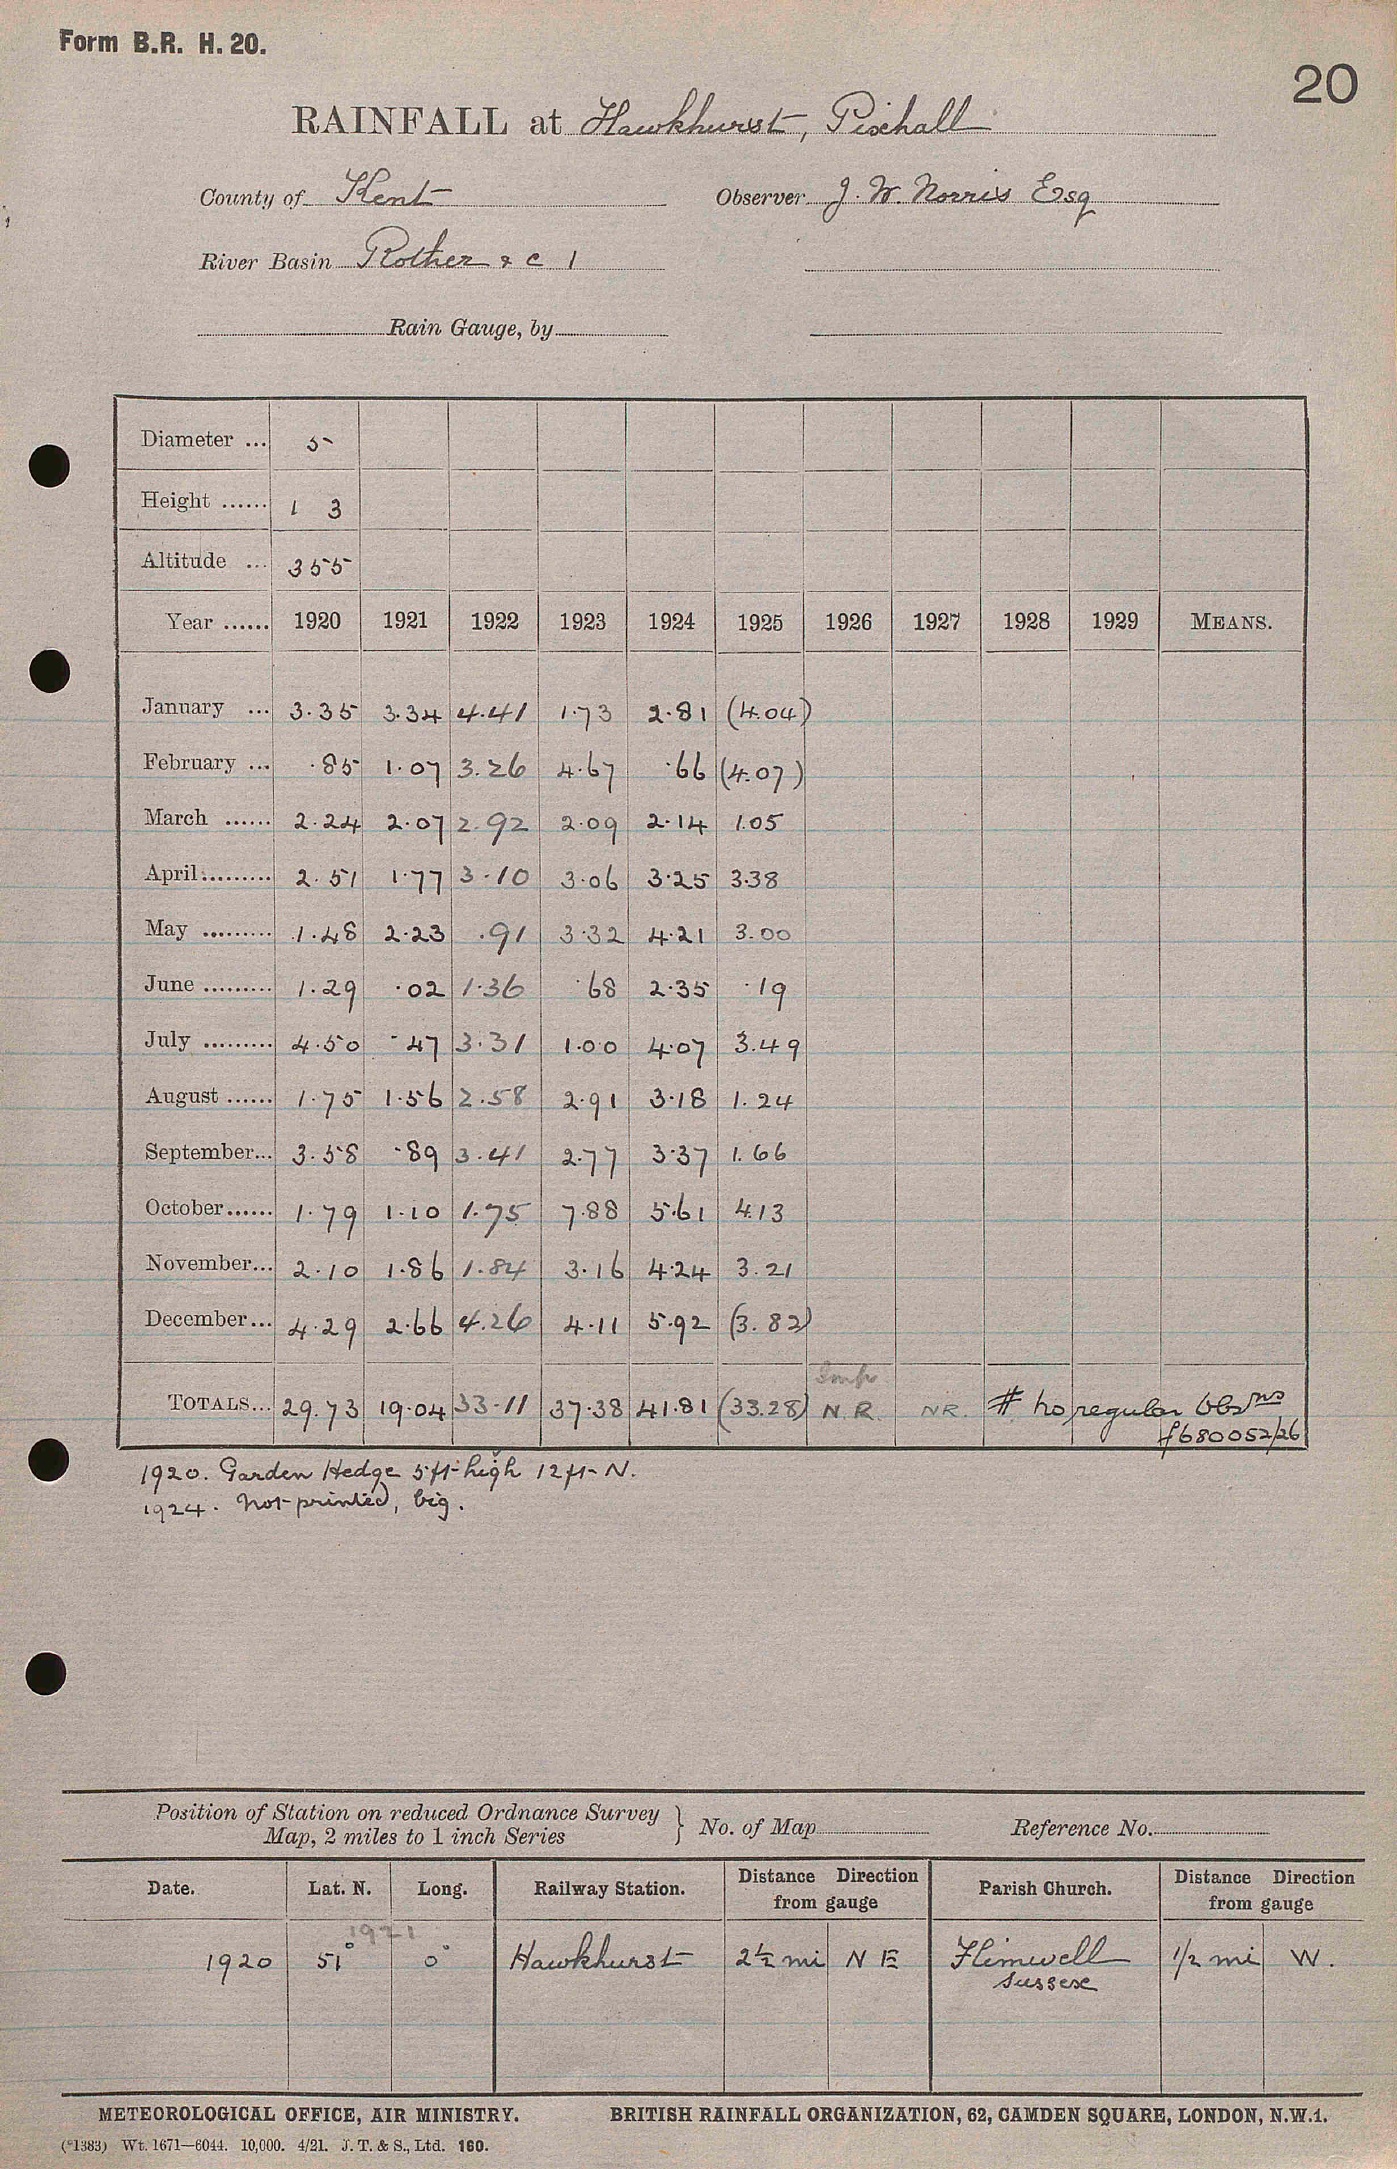 Form B.R. H. 20.
20
RAINFALL at Hawkhurst, Pixhall
County of Kent Observer J. W. Norris Esq
River Basin Rother & c 1
Rain Gauge, by
Diameter ... 5
Height ...... 1 3
Altitude ... 355
Year ...... 1920 1921 1922 1923 1924 1925 1926 1927 1928 1929 MEANS.
January ... 3.35 3.34 4.41 1.73 2.81 (4.04)
February ... .85 1.07 3.26 4.67 .66 (4.07)
March ...... 2.24 2.07 2.92 2.09 2.14 1.05
April ......... 2.51 1.77 3.10 3.06 3.25 3.38
May ......... 1.48 2.23 .91 3.32 4.21 3.00
June ......... 1.29 .02 1.36 .68 2.35 .19
July ......... 4.50 .47 3.31 1.00 4.07 3.49
August ...... 1.75 1.56 2.58 2.91 3.18 1.24
September... 3.58 .89 3.41 2.77 3.37 1.66
October...... 1.79 1.10 1.75 7.88 5.61 4.13
November... 2.10 1.86 1.84 3.16 4.24 3.21
December... 4.29 2.66 4.26 4.11 5.92 (3.82)
Imp
TOTALS... 29.73 19.04 33.11 37.38 41.81 (33.28) N.R. NR. # no regular Obsns
f680052/26
1920. Garden Hedge 5ft high 12ft N.
1924. Not printed, big.
Position of Station on reduced Ordnance Survey
Map, 2 miles to 1 inch Series } No. of Map Reference No.
Date. Lat. N. Long. Railway Station. Distance Direction from gauge Parish Church. Distance Direction from gauge
1921
1920 51° 0° Hawkhurst 2½ mi N E Flimwell 1/2 mi W.
Sussex
METEOROLOGICAL OFFICE, AIR MINISTRY. BRITISH RAINFALL ORGANIZATION, 62, CAMDEN SQUARE, LONDON, N.W.1.
(*1383) Wt. 1671—6044. 10,000. 4/21. J. T. & S., Ltd. 160.